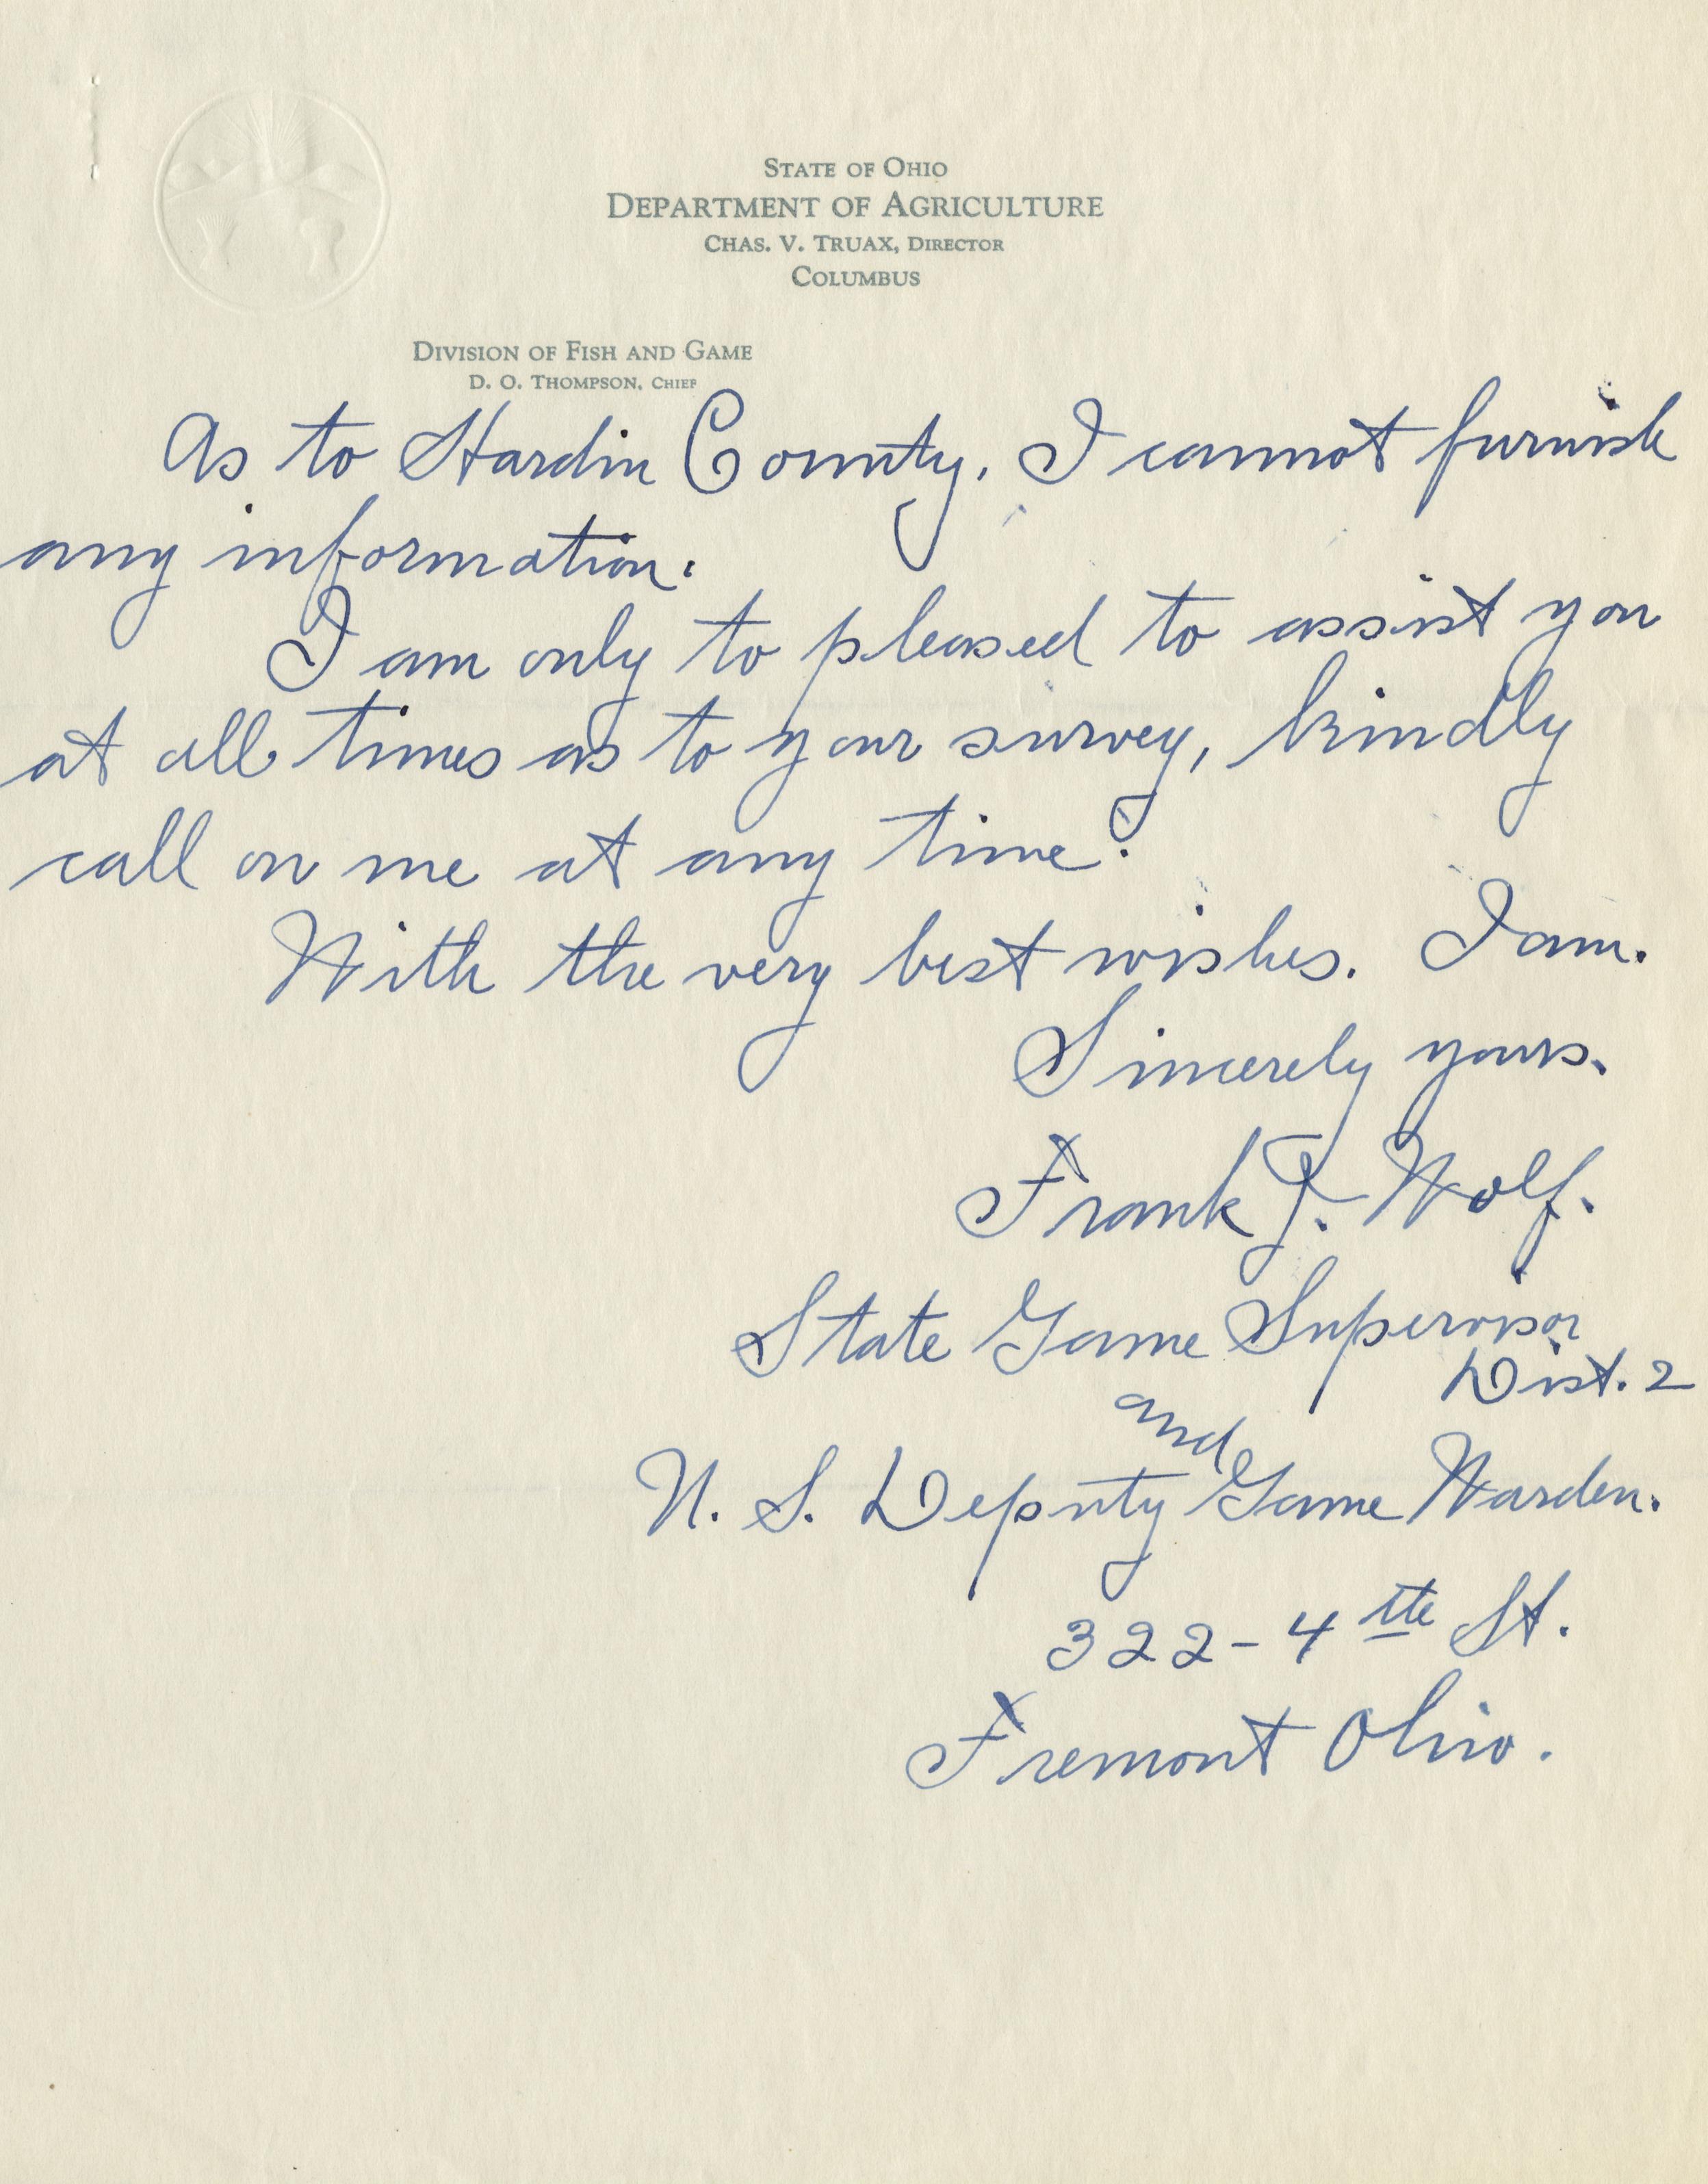 STATE OF OHIO
DEPARTMENT OF AGRICULTURE
CHAS. V. TRUAX, DIRECTOR
COLUMBUS
DIVISION OF FISH AND GAME
D. O. THOMPSON, CHIEF
As to Hardin County, I cannot furnish
any information.
I am only to pleased to assist you
at all times as to your survey, kindly
call on me at any time.
With the very best wishes. I am.
Sincerely yours.
Frank J. Wolf.
State Game Supervisor
Dist. 2
and
U. S. Deputy Game Warden.
322-4th St.
Fremont Ohio.